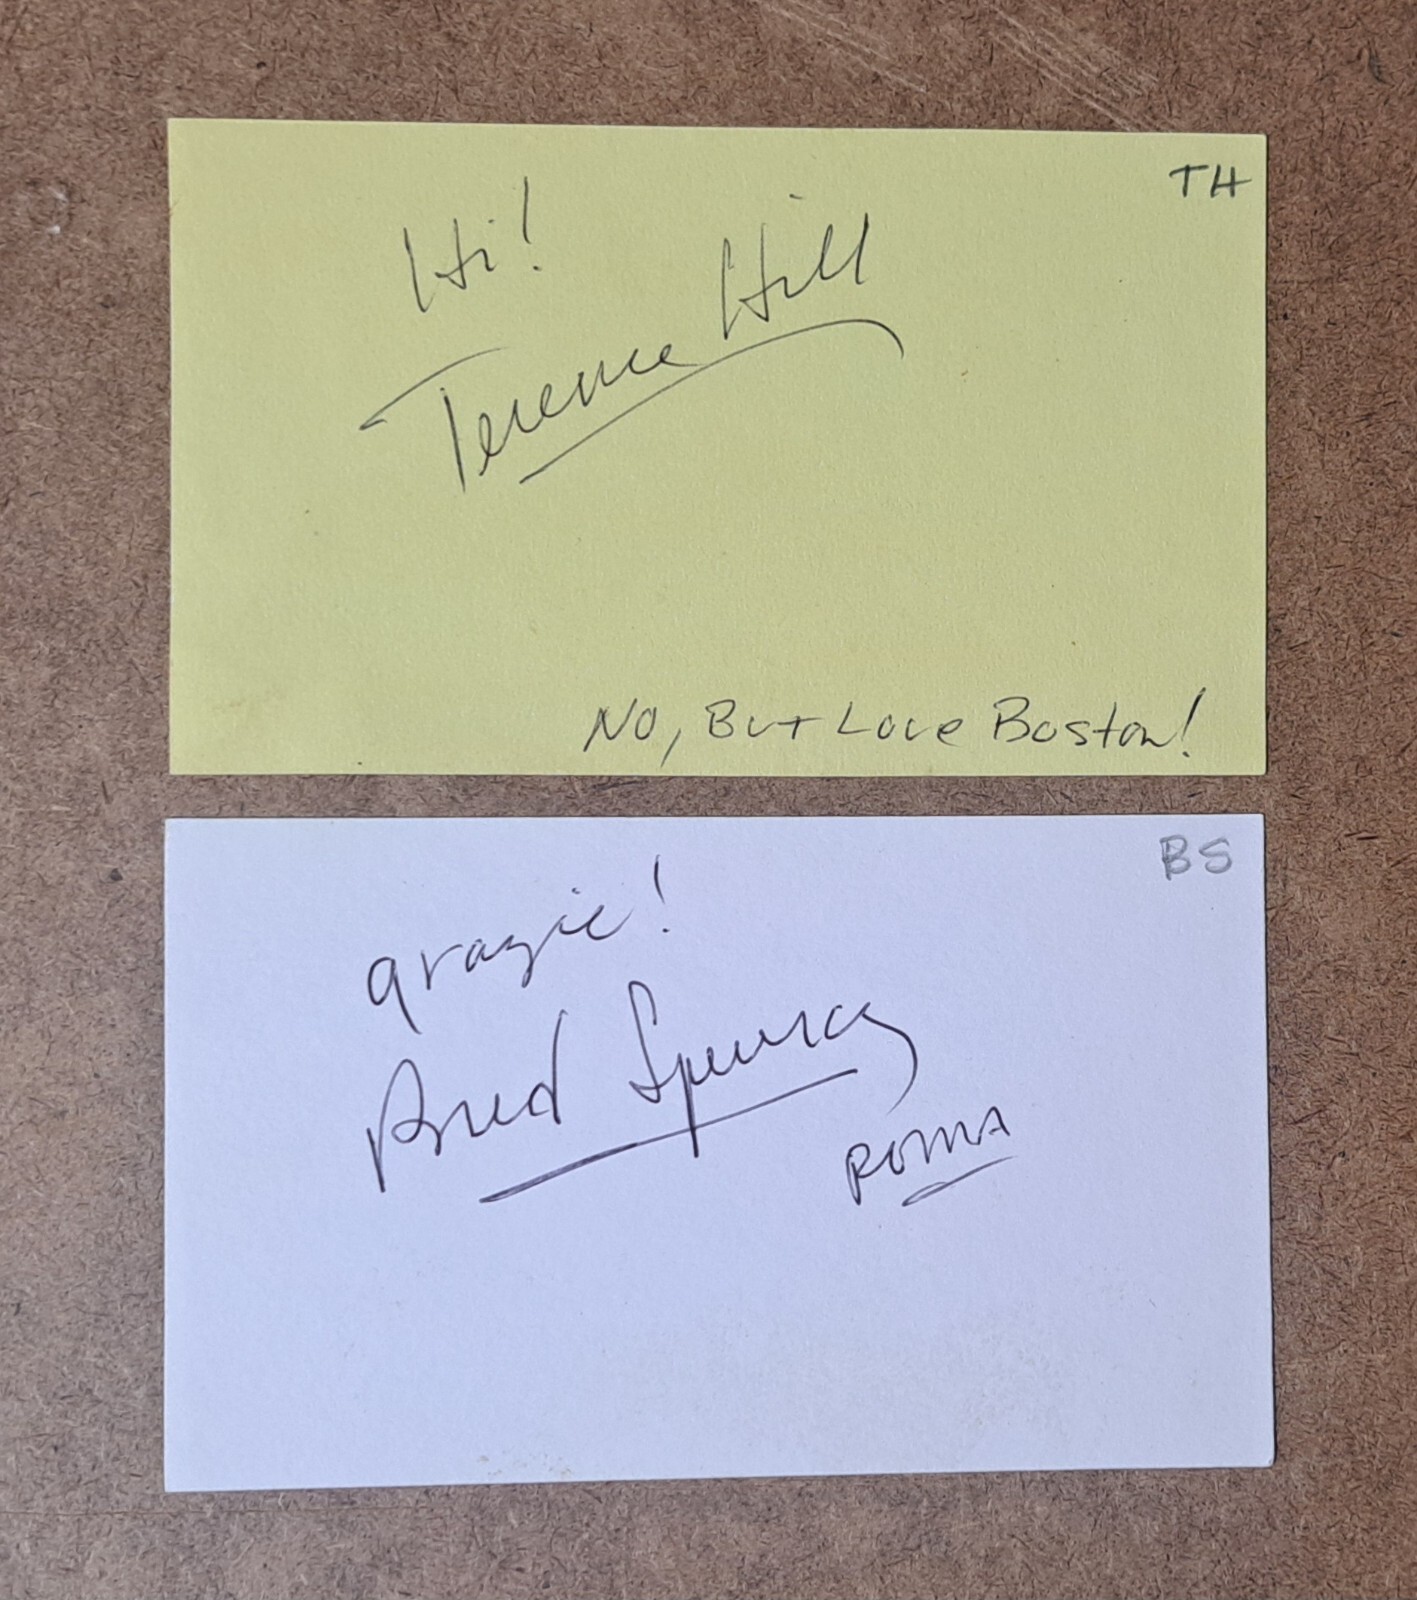 TH
Hi!
Terence Hill
No, But Love Boston!
BS
grazie!
Bud Spencer
ROMA